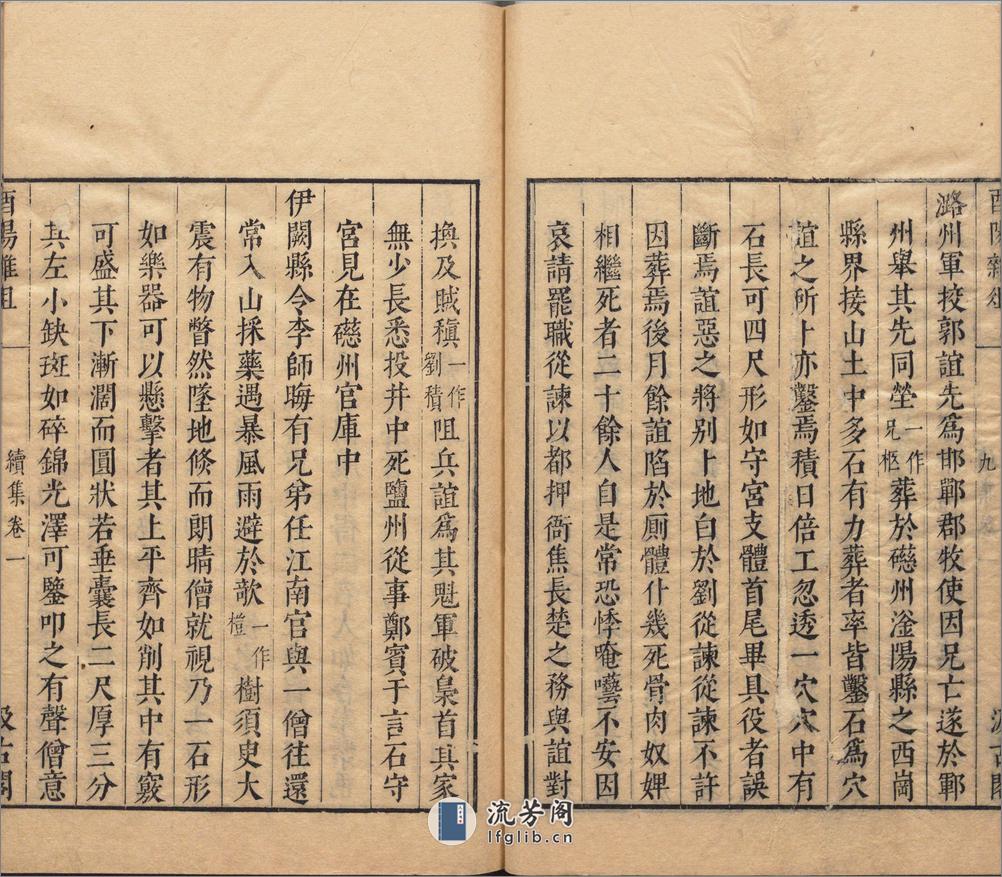 酉陽雜俎
九
汲古閣
潞州軍挍郭誼先爲邯鄲郡牧使因兄亡遂於鄆
州舉其先同塋一作兄柩葬於磁州滏陽縣之西崗
縣界接山土中多石有力葬者率皆鑿石爲穴
誼之所卜亦鑿焉積日倍工忽透一穴穴中有
石長可四尺形如守宮支體首尾畢具役者誤
斷焉誼惡之將别卜地白於劉從諫從諫不許
因葬焉後月餘誼陷於厠體仆幾死骨肉奴婢
相繼死者二十餘人自是常恐悸唵囈不安因
哀請罷職從諫以都押衙焦長楚之務與誼對
換及賊稹一作劉積阻兵誼爲其魁軍破梟首其家
無少長悉投井中死鹽州從事鄭賓于言石守
宮見在磁州官庫中
伊闕縣令李師晦有兄弟任江南官與一僧往還
常入山採藥遇暴風雨避於欹一作榿樹須臾大
震有物瞥然墜地倐而朗晴僧就視乃一石形
如樂器可以懸擊者其上平齊如削其中有竅
可盛其下漸濶而圓狀若垂囊長二尺厚三分
其左小缺斑如碎錦光澤可鑒叩之有聲僧意
酉陽雜俎
續集卷一
汲古閣
流芳阁
lfglib.cn